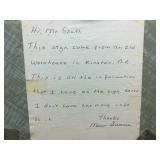 Hi, Mr Smith
This sign came from an old
Warehouse in Kinston, NC
This is all the information
that I have on the sign. Sorry
I don't have any more info
on it.
Thanks